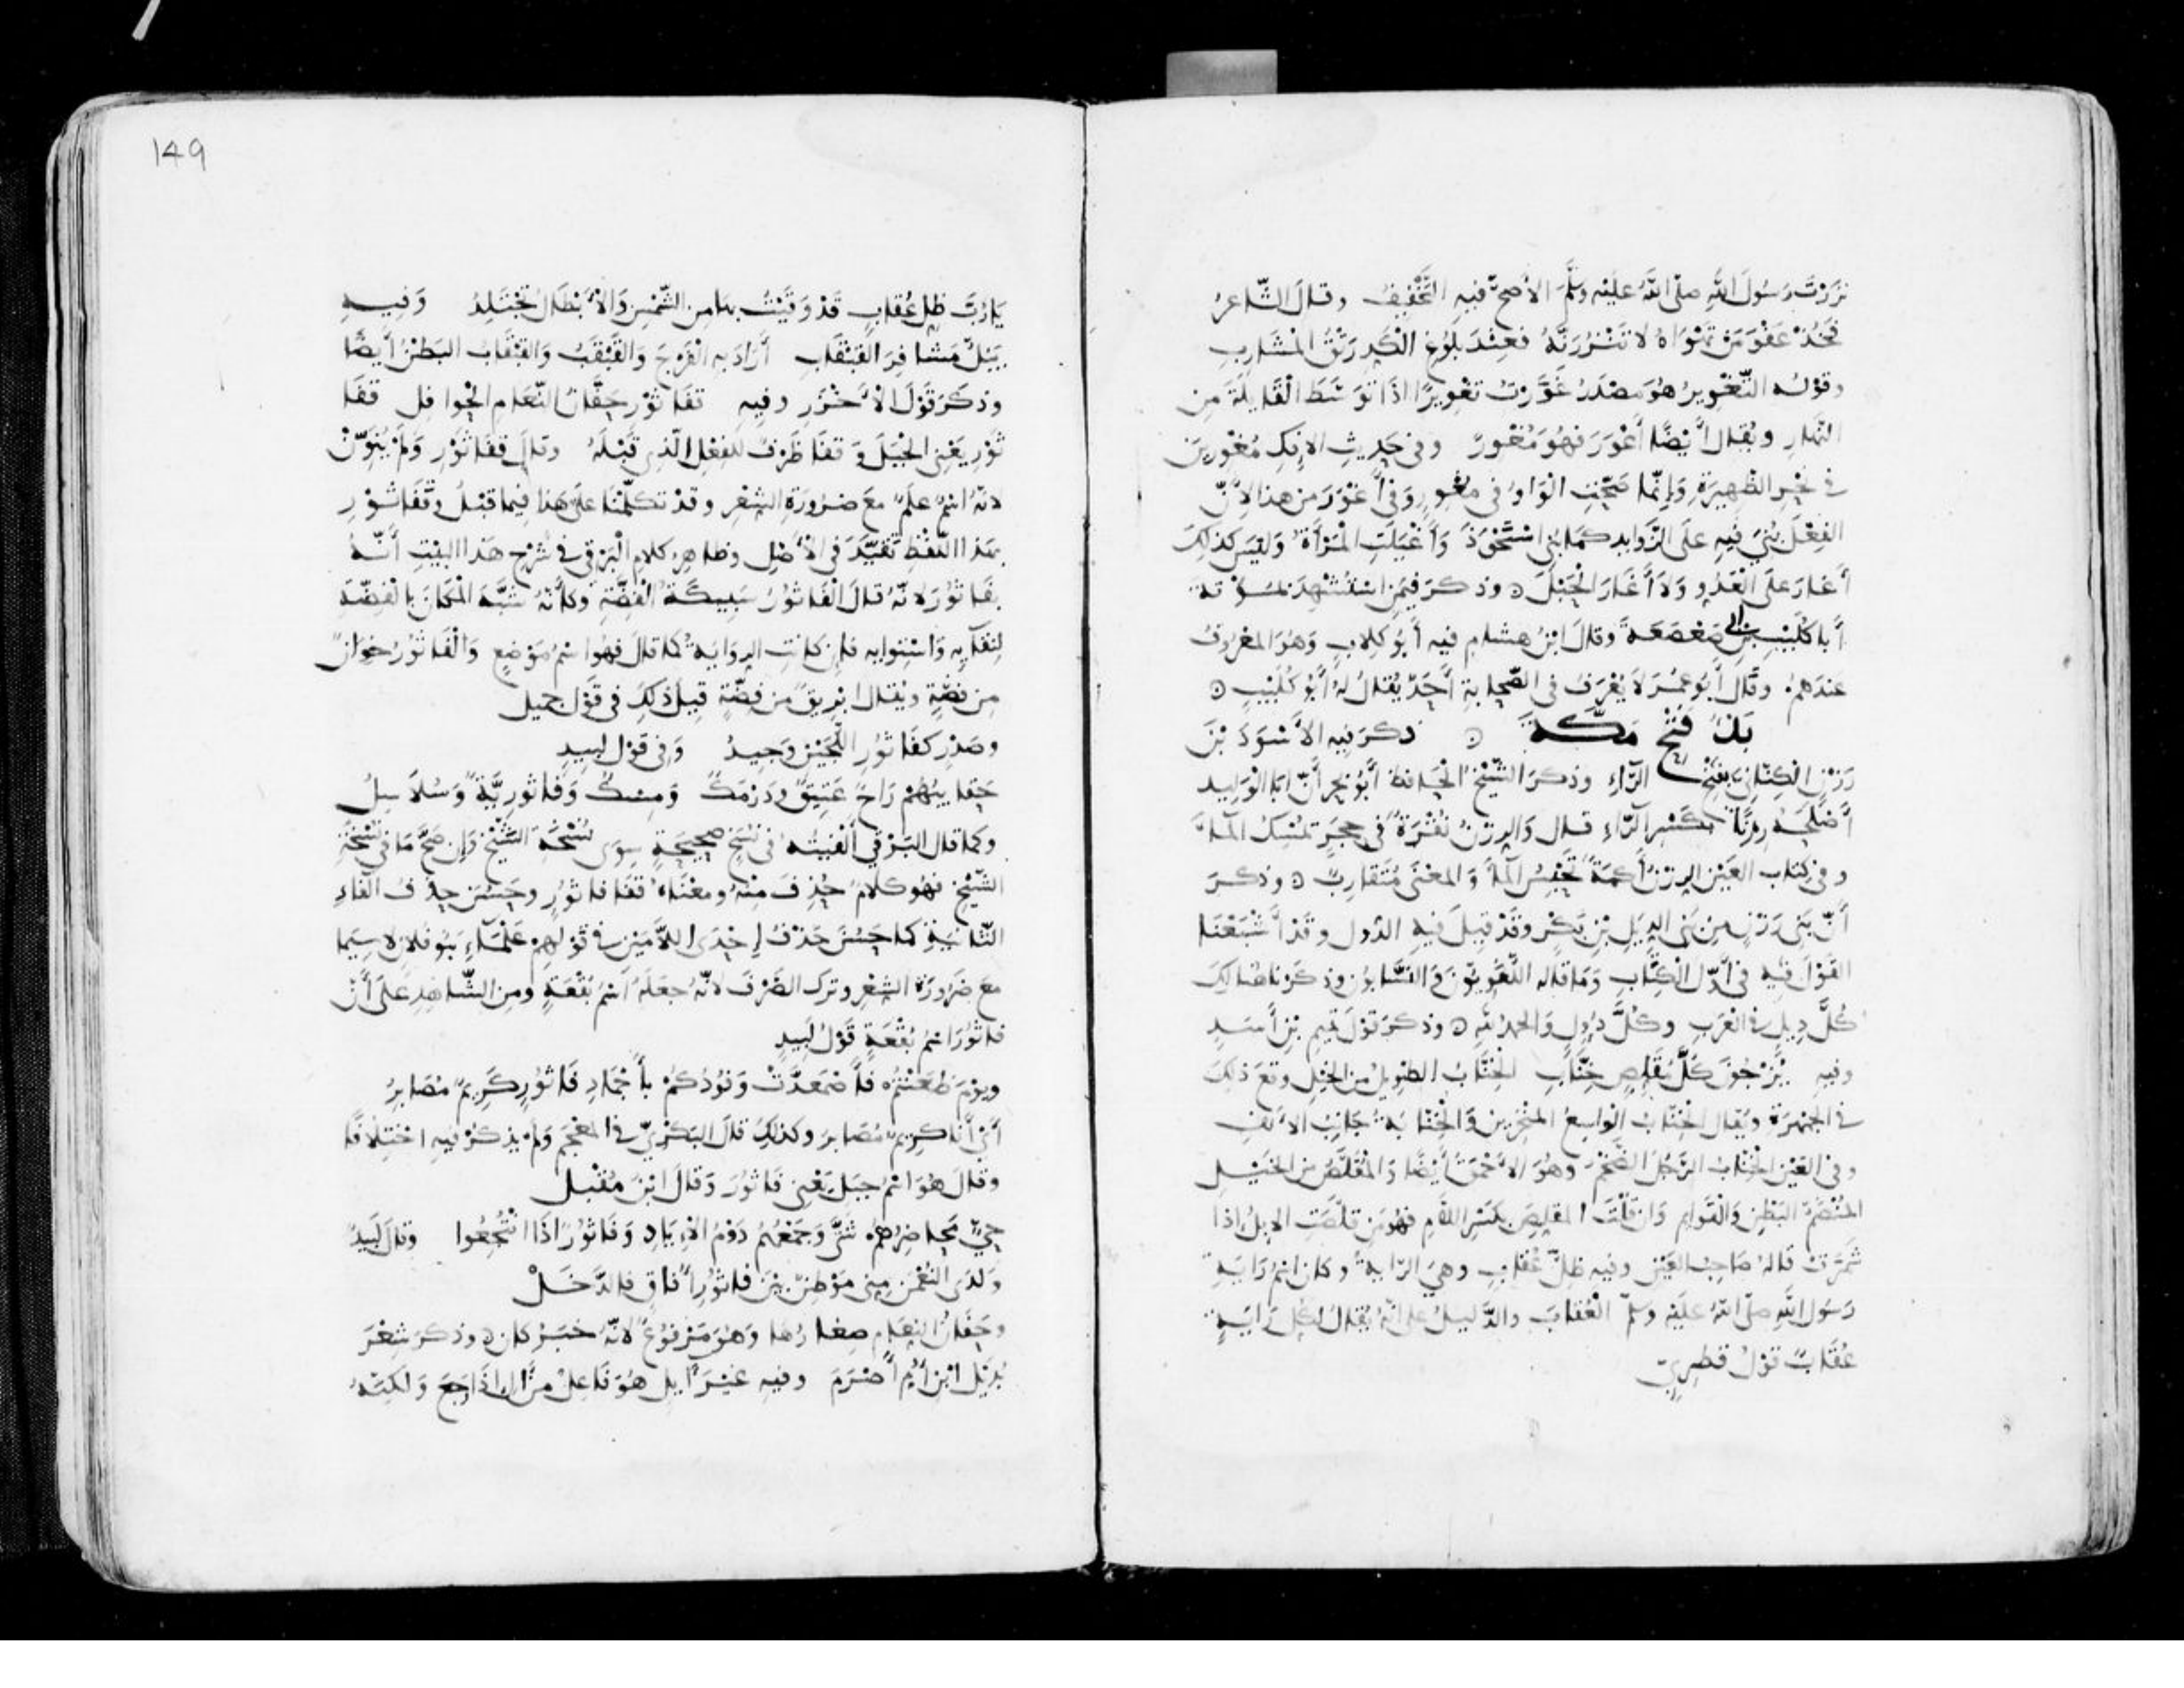 نزرت رسول الله صلى الله عليه وسلم الأصح فيه التخفيف وقال الشاعر
فخذ عفو من تهواه لا تنزرنه فعند بلوغ الكد رنق المشارب
وقوله التغوير هو مصدر غورت تغويرا اذا توسط القايلة من
النهار ويقال أيضا أغور فهو مغور وفي حديث الافك مغورين
في نحر الظهيرة وإنما صحت الواو في مغور وفي أغور من هذا لأن
الفعل بني فيه على الزوايد كما بني استحوذ وأغيلت المرأة وليس كذلك
أغار على العدو ولا أغار الحبل وذكر فيمن استشهد بمؤتة
أبا كليب بن أبي صعصعة وقال ابن هشام فيه أبو كلاب وهو المعروف
عندهم وقال أبو عمر لا يعرف في الصحابة أحد يقال له أبو كليب
بدء فتح مكة ذكر فيه الأسود بن
رزن الكناني بفتح الراء وذكر الشيخ الحافظ أبو بحر أن ابا الوليد
أصلحه رزنا بكسر الراء قال والرزن نقرة في حجر تمسك الماء
وفي كتاب العين الرزن أكمة تحبس الماء والمعنى متقارب وذكر
أن بني رزن من بني الديل بن بكر وقد قيل فيه الدول وقد أشبعنا
القول فيه في أول الكتاب وما قاله اللغويون والنسابون وذكرنا هنالك
كل ديل في العرب وكل دول والحمد لله وذكر قول تميم بن أسد
وفيه يزجون كل مقلص خناب الخناب الطويل من الخيل وقع ذلك
في الجمهرة ويقال الخناب الواسع المنخرين والخنابة جانب الانف
وفي العين الخناب الرجل الضخم وهو الأحمق أيضا والمقلص من الخيل
المنضم البطن والقوايم وان قلت المقلص بكسر اللام فهو من قلصت الابل اذا
شمرت قاله صاحب العين وفيه ظل عقاب وهي الراية وكان اسم راية
رسول الله صلى الله عليه وسلم العقاب والدليل على أنه يقال لكل راية
عقاب قول قطري
149
يا رب ظل عقاب قد وقيت بها من الشمس والأبطال تجتلد وفيه
يبل مشافر القبقاب أراد به الفرج والقبقب والقبقاب البطن أيضا
وذكر قول الأخزر وفيه قفا ثور حفان النعام الجوافل قفا
ثور يعني الجبل وقفا ظرف للفعل الذي قبله وقال قفا ثور ولم ينون
لانه اسم علم مع ضرورة الشعر وقد تكلمنا على هذا فيما قبل وقفا ثور
بهذا اللفظ تقيد في الأصل وظاهر كلام البرقي في شرح هذا البيت أنه
بفاثور لانه قال الفاثور سبيكة الفضة وكأنه شبه المكان بالفضة
لنقايه واستوايه فإن كانت الرواية كما قال فهو اسم موضع والفاثور خوان
من فضة ويقال ابريق من فضة قيل ذلك في قول جميل
وصدر كفاثور اللجين وجيد وفي قول لبيد
حقايبهم راح عتيق ودرمك ومسك وفاثورية وسلاسل
وكما قال البرقي ألفيته في نسخ صحيحة سوى نسخة الشيخ وإن صح ما في نسخة
الشيخ فهو كلام حذف منه ومعناه قفا فاثور وحسن حذف الفاء
الثانية كما حسن حذف إحدى اللامين في قولهم علماء بنو فلان لا سيما
مع ضرورة الشعر وترك الصرف لانه جعله اسم بقعة ومن الشاهد على أن
فاثور اسم بقعة قول لبيد
ويوم طعنتم فاصمعدت وفودكم بأجماد فاثور كريم مصابر
أي أنا كريم مصابر وكذلك قال البكري في المعجم ولم يذكر فيه اختلافا
وقال هو اسم جبل يعني فاثور وقال ابن مقبل
حي محاضرهم شتى وجمعهم دوم الاياد وفاثور اذا انتجعوا وقال لبيد
ولدى النعمن مني موطن بين فاثور أفاق فالدحل
وحفان النعام صغارها وهو مرفوع لانه خبر كان وذكر شعر
بديل ابن أم أصرم وفيه غير آيل هو فاعل من آل اذا رجع ولكنه